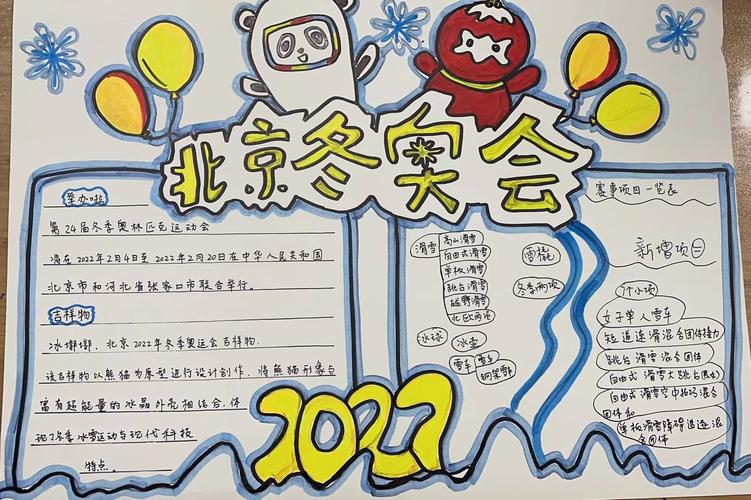 北京冬奥会
举办啦
第24届冬季奥林匹克运动会
将在2022年2月4日至2022年2月20日在中华人民共和国
北京市和河北省张家口市联合举行。
吉祥物
冰墩墩，北京2022年冬季奥运会吉祥物.
该吉祥物以熊猫为原型进行设计创作，将熊猫形象与
富有超能量的冰晶外壳相结合，体
现了冬季冰雪运动与现代科技
特点。
滑雪
高山滑雪
自由式滑雪
单板滑雪
跳台滑雪
越野滑雪
北欧两项
雪橇
冬季两项
冰球
冰壶
雪车
雪车
钢架雪车
赛事项目一览表
新增项目
7个小项
女子单人雪车
短道速滑混合团体接力
跳台滑雪混合团体
自由式滑雪大跳台
自由式滑雪空中技巧混合
团体和
单板滑雪障碍追逐混
合团体
2022